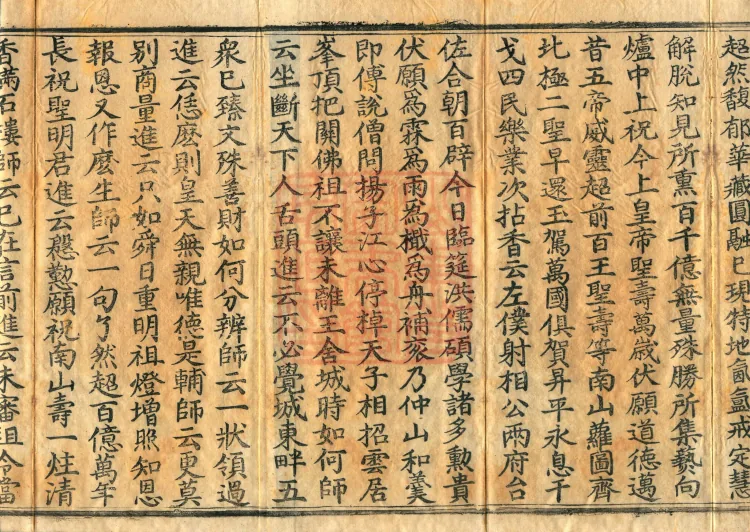 超然馥郁華藏圓融已現特地氤氳戒定慧
解脫知見所熏百千億無量殊勝所集爇向
爐中上祝今上皇帝聖壽萬歲伏願道德邁
昔五帝威靈超前百王聖壽等南山蘿圖齊
北極二聖早還玉駕萬國俱賀昇平永息干
戈四民樂業次拈香云左僕射相公兩府台
佐合朝百辟今日臨筵洪儒碩學諸多勳貴
伏願爲霖爲雨爲檝爲舟補衮乃仲山和羹
即傅說僧問揚子江心停棹天子相招雲居
峯頂把關佛祖不讓未離王舍城時如何師
云坐斷天下人舌頭進云不必覺城東畔五
衆已臻文殊善財如何分辨師云一狀領過
進云恁麽則皇天無親唯德是輔師云更莫
別商量進云只如舜日重明祖燈增照知恩
報恩又作麽生師云一句了然超百億萬年
長祝聖明君進云慇懃願祝南山壽一炷清
香滿石樓師云已在信前進云未審祖令當